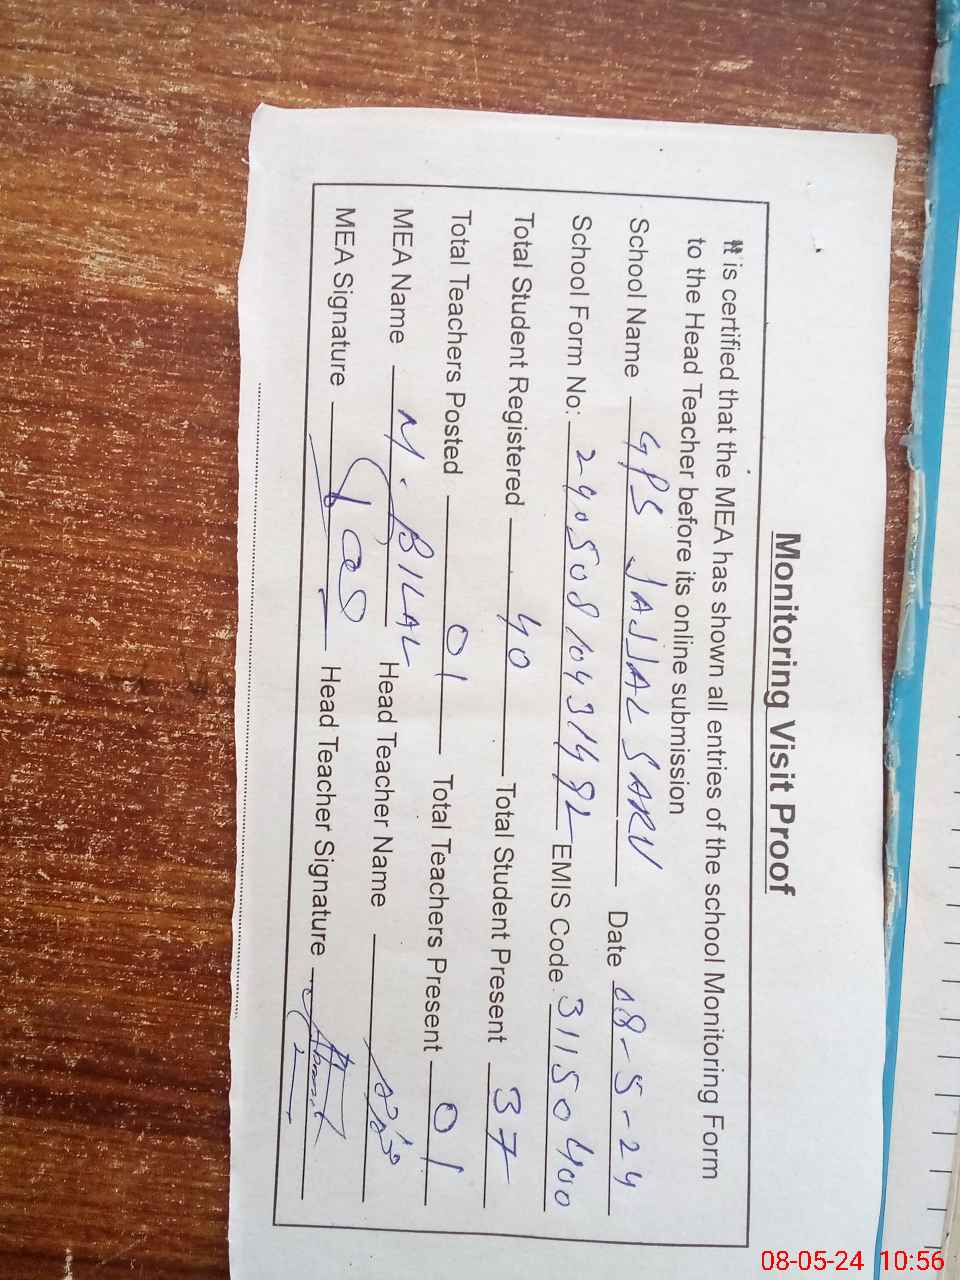 Monitoring Visit Proof
It is certified that the MEA has shown all entries of the school Monitoring Form
to the Head Teacher before its online submission
School Name GPS JAJJAL SARU Date 08-5-24
School Form No: 240508104319482 EMIS Code 31150400
Total Student Registered 40 Total Student Present 37
Total Teachers Posted 01 Total Teachers Present 01
MEA Name M. BILAL Head Teacher Name
MEA Signature Head Teacher Signature
08-05-24 10:56